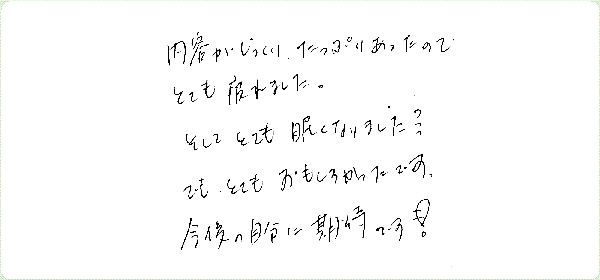 内容がじっくり、たっぷりあったので
とても疲れました。
そして とても 眠くなりました??
でも、とても おもしろかったです。
今後の自分に期待です!